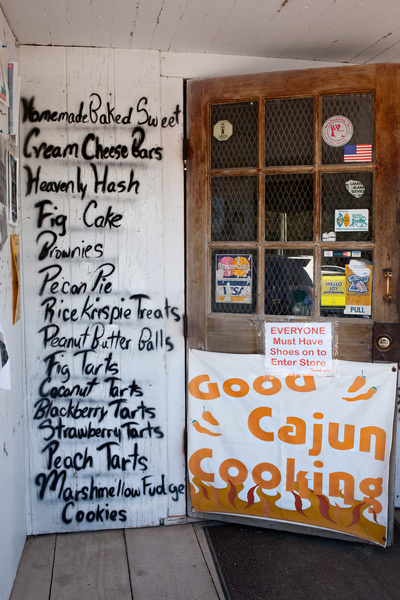 Homemade Baked Sweet
Cream Cheese Bars
Heavenly Hash
Fig Cake
Brownies
Pecan Pie
Rice Krispie Treats
Peanut Butter Balls
Fig Tarts
Coconut Tarts
Blackberry Tarts
Strawberry Tarts
Peach Tarts
Marshmellow Fudge
Cookies
VISA
HELLO
JOY
PULL
EVERYONE
Must Have
Shoes on to
Enter Store
Thank you
Good
Cajun
Cooking